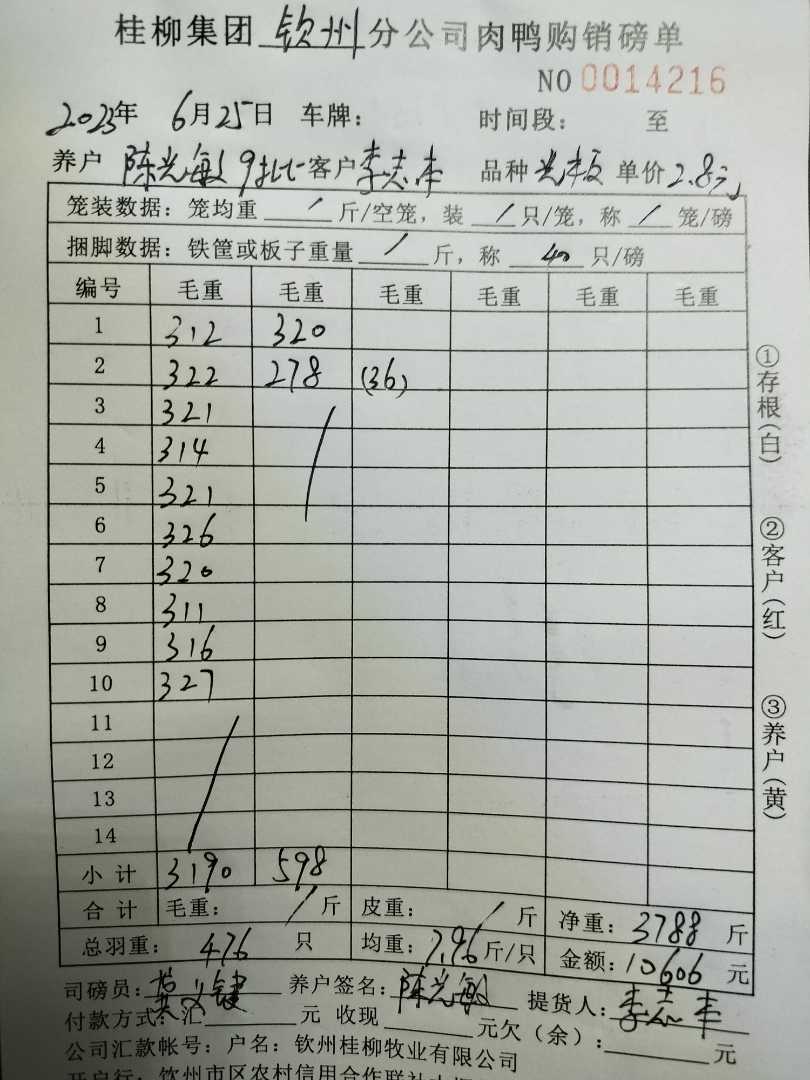 桂柳集团 钦州 分公司肉鸭购销磅单
NO 0014216
2023年 6月25日 车牌： 时间段： 至
养户 陈光敏 9批 客户 李志丰 品种 单价 2.8元
笼装数据：笼均重 / 斤/空笼，装 / 只/笼，称 / 笼/磅
捆脚数据：铁筐或板子重量 / 斤，称 40 只/磅
编号 毛重 毛重 毛重 毛重 毛重 毛重
1 312 320
2 322 278 (36)
3 321
4 314
5 321
6 326
7 320
8 311
9 316
10 327
11
12
13
14
小计 3190 598
合计 毛重： / 斤 皮重： / 斤 净重：3788 斤
总羽重： 476 只 均重：7.96 斤/只 金额：10606 元
司磅员： 养户签名：陈光敏 提货人：李志丰
付款方式：汇 元 收现 元欠（余）： 元
公司汇款帐号：户名：钦州桂柳牧业有限公司
开户行：钦州市区农村信用合作联社
①存根(白)
②客户(红)
③养户(黄)